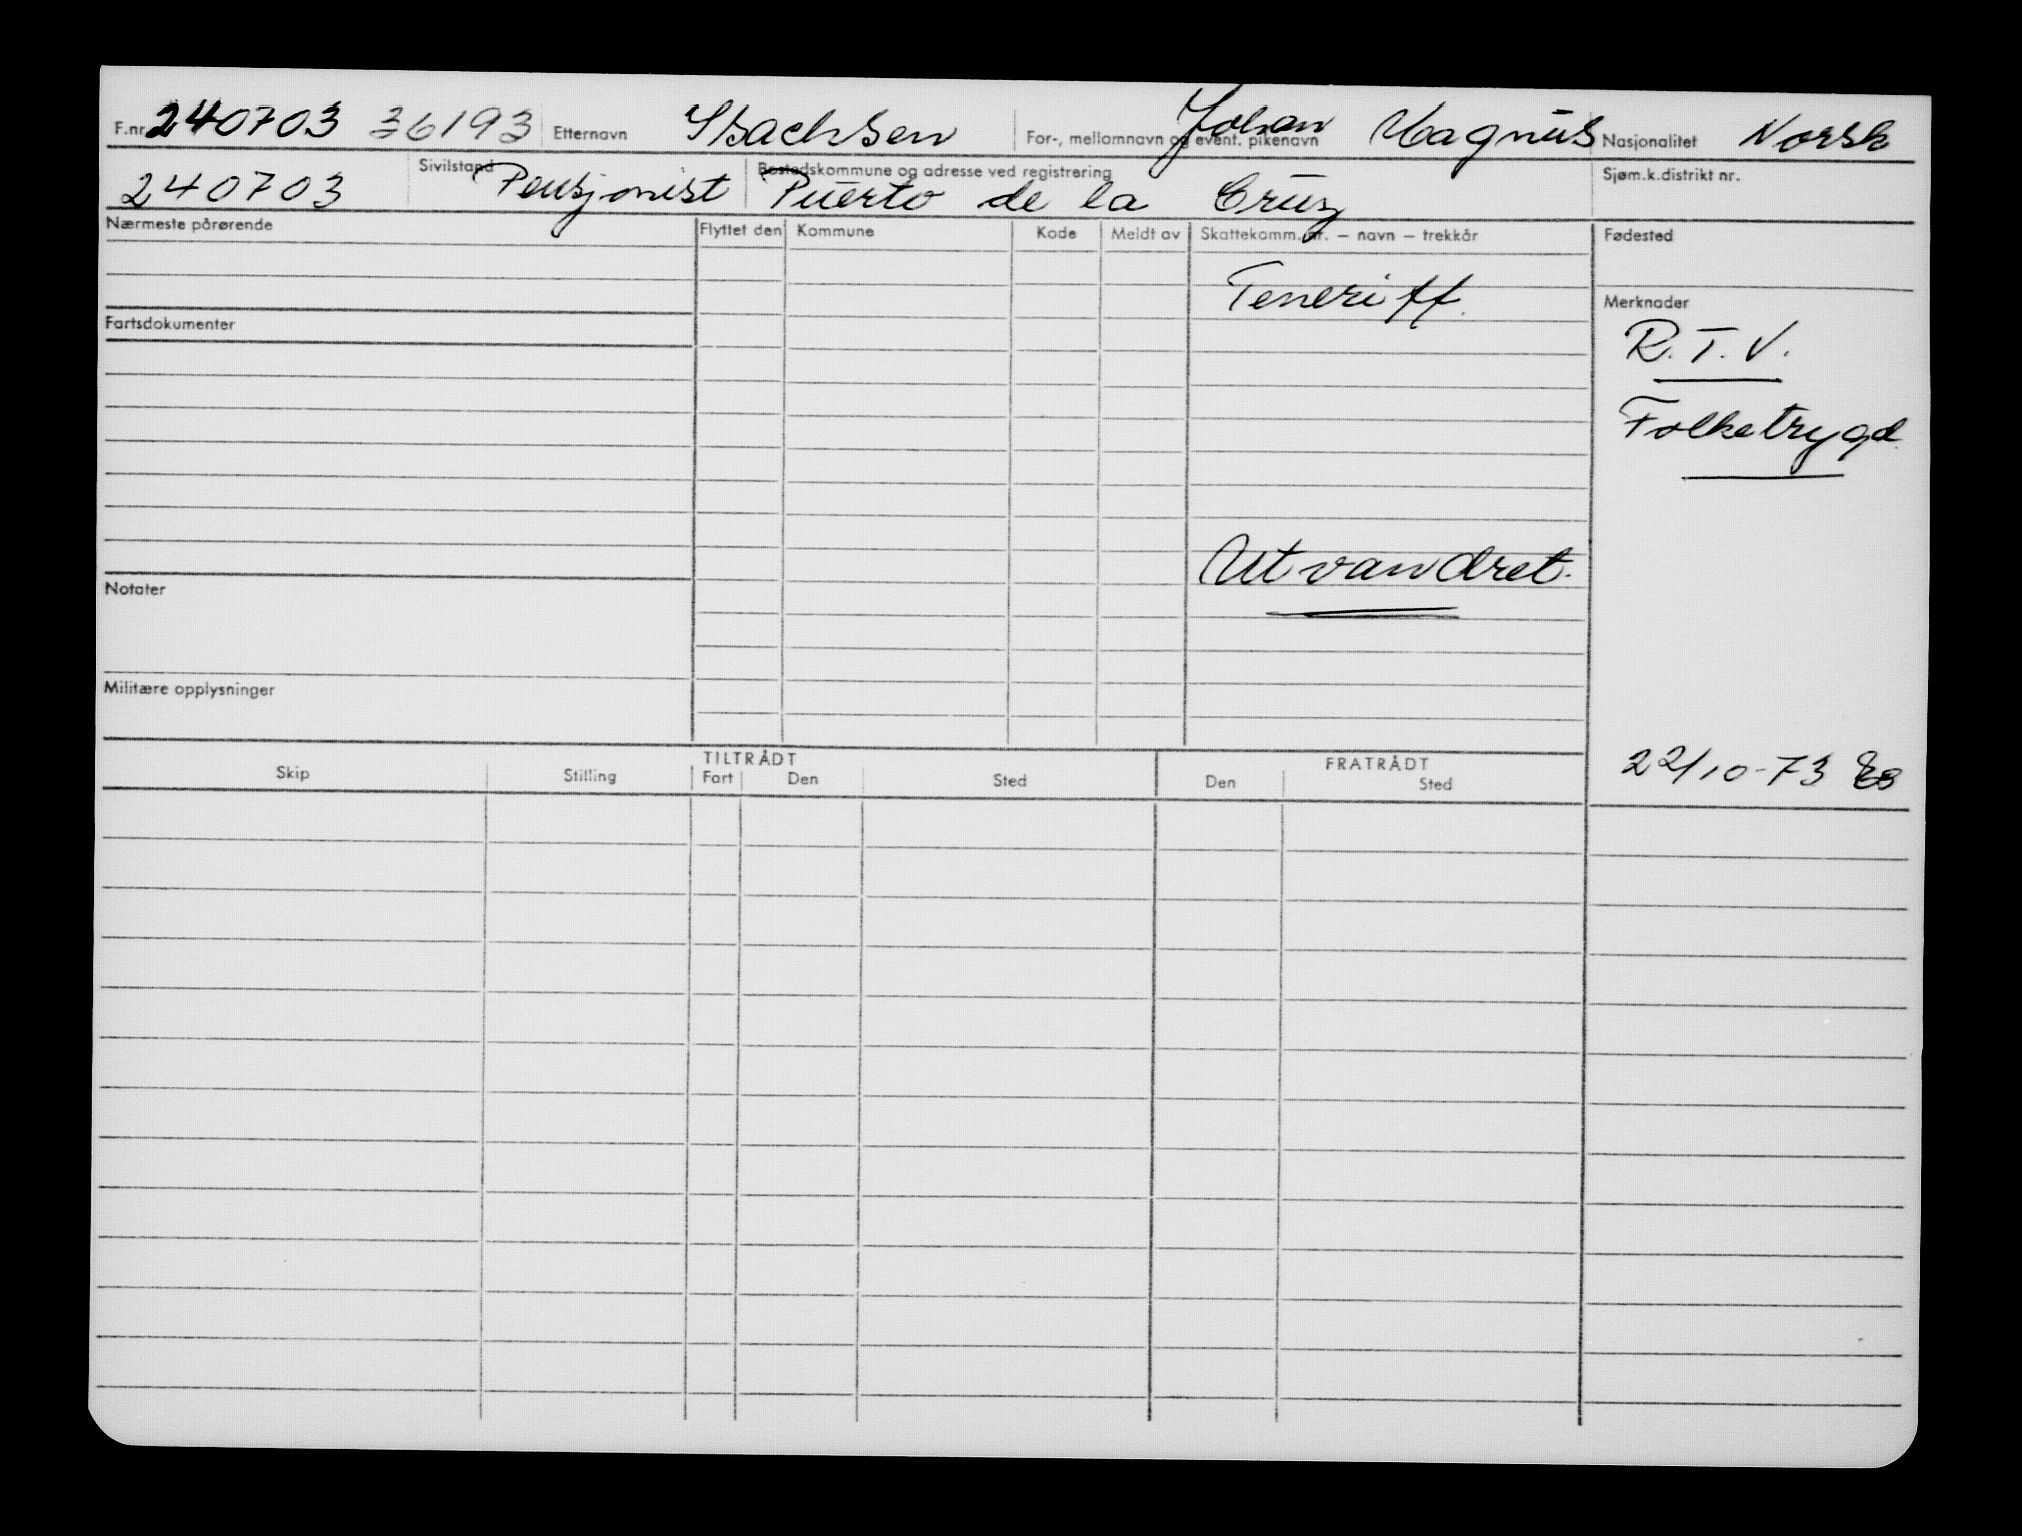 F.nr. 240703 36193 Etternavn Isachsen For-, mellomnavn og event. pikenavn Johan Magnus Nasjonalitet Norsk
240703 Sivilstand Pensjonist Bostedskommune og adresse ved registrering Puerto de la Cruz Sjøm.k.distrikt nr.
Nærmeste pårørende Flyttet den Kommune Kode Meldt av Skattekomm.nr. – navn – trekkår Fødested
Teneriff.
Merknader
Fartsdokumenter
R.T.V.
Folketrygd
Utvandret.
Notater
Militære opplysninger
TILTRÅDT FRATRÅDT
22/10-73
Skip Stilling Fart Den Sted Den Sted